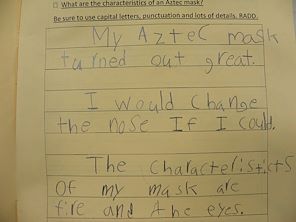 □ What are the characteristics of an Aztec mask?
Be sure to use capital letters, punctuation and lots of details. RADD.
My Aztec mask
turned out great.
I would change
the nose If I could.
The characteristicts
Of my mask are
fire and the eyes.